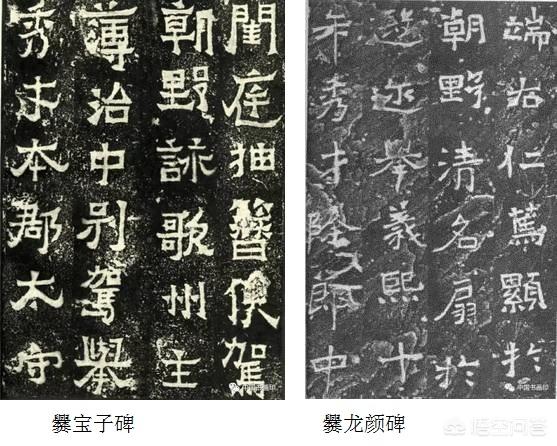 閨庭抽簪俟駕
朝野詠歌州主
薄治中別駕舉
秀才本郡太守
中国书画印
爨宝子碑
端右仁篤顯於
朝野清名扇於
遐迩舉義熙十
年秀才除郎中
中国书画印
爨龙颜碑
悟空问答